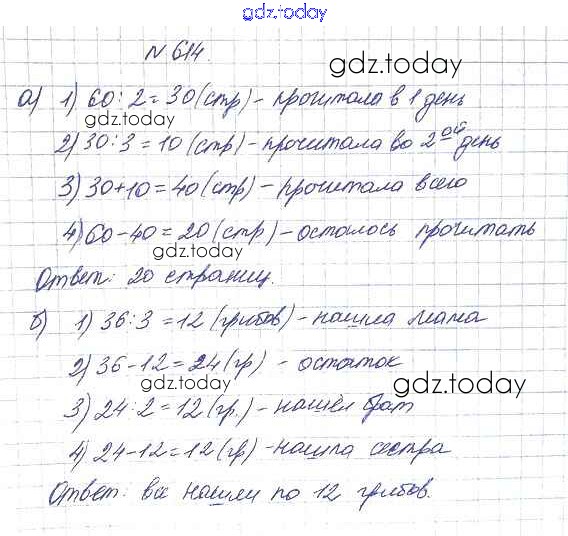 gdz.today
N 614.
gdz.today
а) 1) 60 : 2 = 30 (стр) - прочитала в 1 день
gdz.today
2) 30 : 3 = 10 (стр) - прочитала во 2ой день
3) 30+10 = 40 (стр) - прочитала всего
4) 60 - 40 = 20 (стр) - осталось прочитать
gdz.today
Ответ: 20 страниц.
б) 1) 36 : 3 = 12 (грибов) - нашла мама
2) 36 - 12 = 24 (гр) - остаток
gdz.today
gdz.today
3) 24 : 2 = 12 (гр.) - нашёл брат
4) 24 - 12 = 12 (гр) - нашла сестра
Ответ: все нашли по 12 грибов.
gdz.today